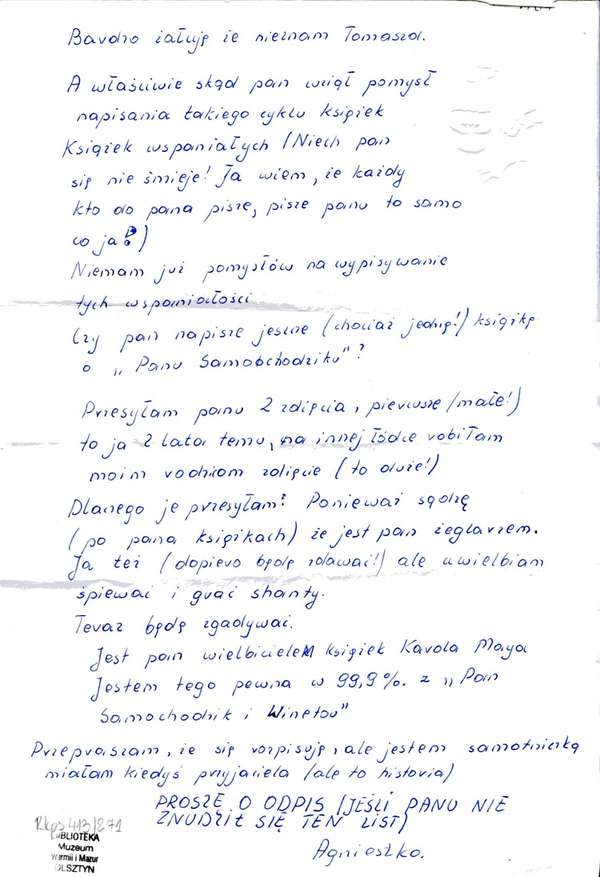 Bardzo żałuję że nieznam Tomasza.
A właściwie skąd pan wziął pomysł
napisania takiego cyklu książek
Książek wspaniałych (Niech pan
się nie śmieje! Ja wiem, że każdy
kto do pana pisze, pisze panu to samo
co ja!)
Niemam już pomysłów na wypisywanie
tych wspaniałości
Czy pan napisze jeszcze (chociaż jedną!) książkę
o „Panu Samochodziku"?
Przesyłam panu 2 zdjęcia, pierwsze (małe!)
to ja 2 lata temu, na innej łódce robiłam
moim rodzicom zdjęcie (to duże!)
Dlaczego je przesyłam? Ponieważ sądzę
(po pana książkach) że jest pan żeglarzem.
Ja też (dopiero będę zdawać!) ale uwielbiam
śpiewać i grać shanty.
Teraz będę zgadywać.
Jest pan wielbicielem książek Karola Maya
Jestem tego pewna w 99,9%. z „Pan
Samochodzik i Winetou"
Przepraszam, że się rozpisuję, ale jestem samotniczką
miałam kiedyś przyjaciela (ale to historia)
PROSZĘ O ODPIS (JEŚLI PANU NIE
ZNUDZIŁ SIĘ TEN LIST)
Agnieszka.
Rkps 413/271
BIBLIOTEKA
Muzeum
Warmii i Mazur
OLSZTYN